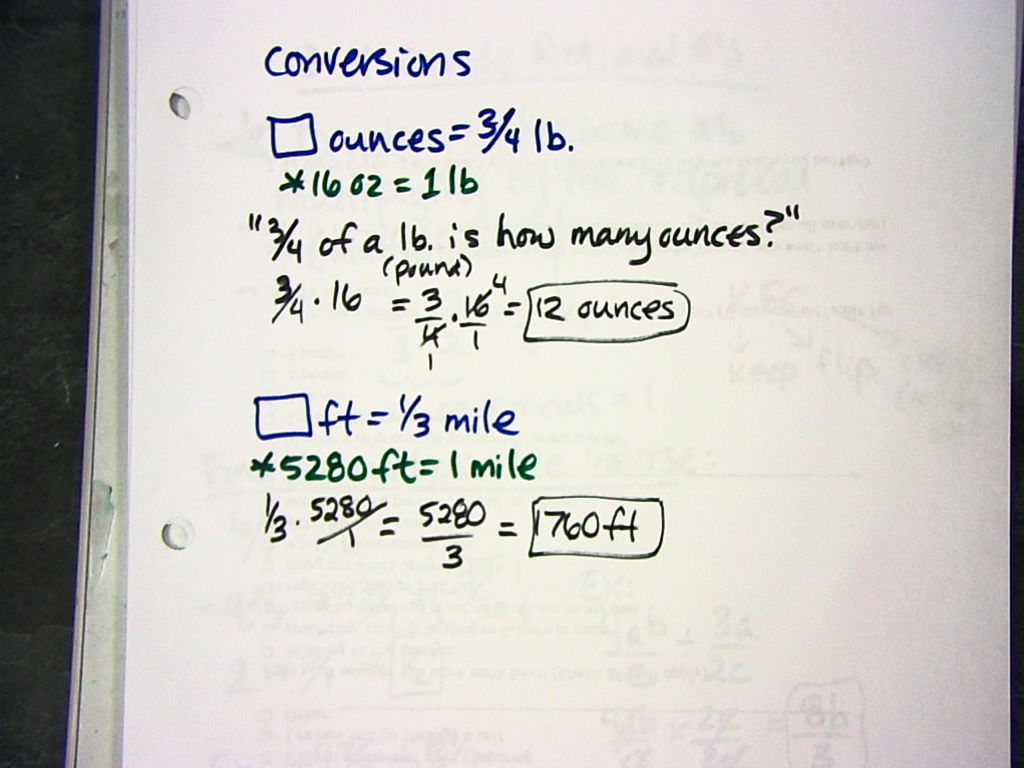 conversions
□ ounces = 3/4 lb.
*16 oz = 1 lb
"3/4 of a lb. is how many ounces?"
(pound)
3/4 · 16 = 3/4 · 16/1 = 12 ounces
4
1
□ ft = 1/3 mile
*5280 ft = 1 mile
1/3 · 5280/1 = 5280/3 = 1760 ft
keep flip